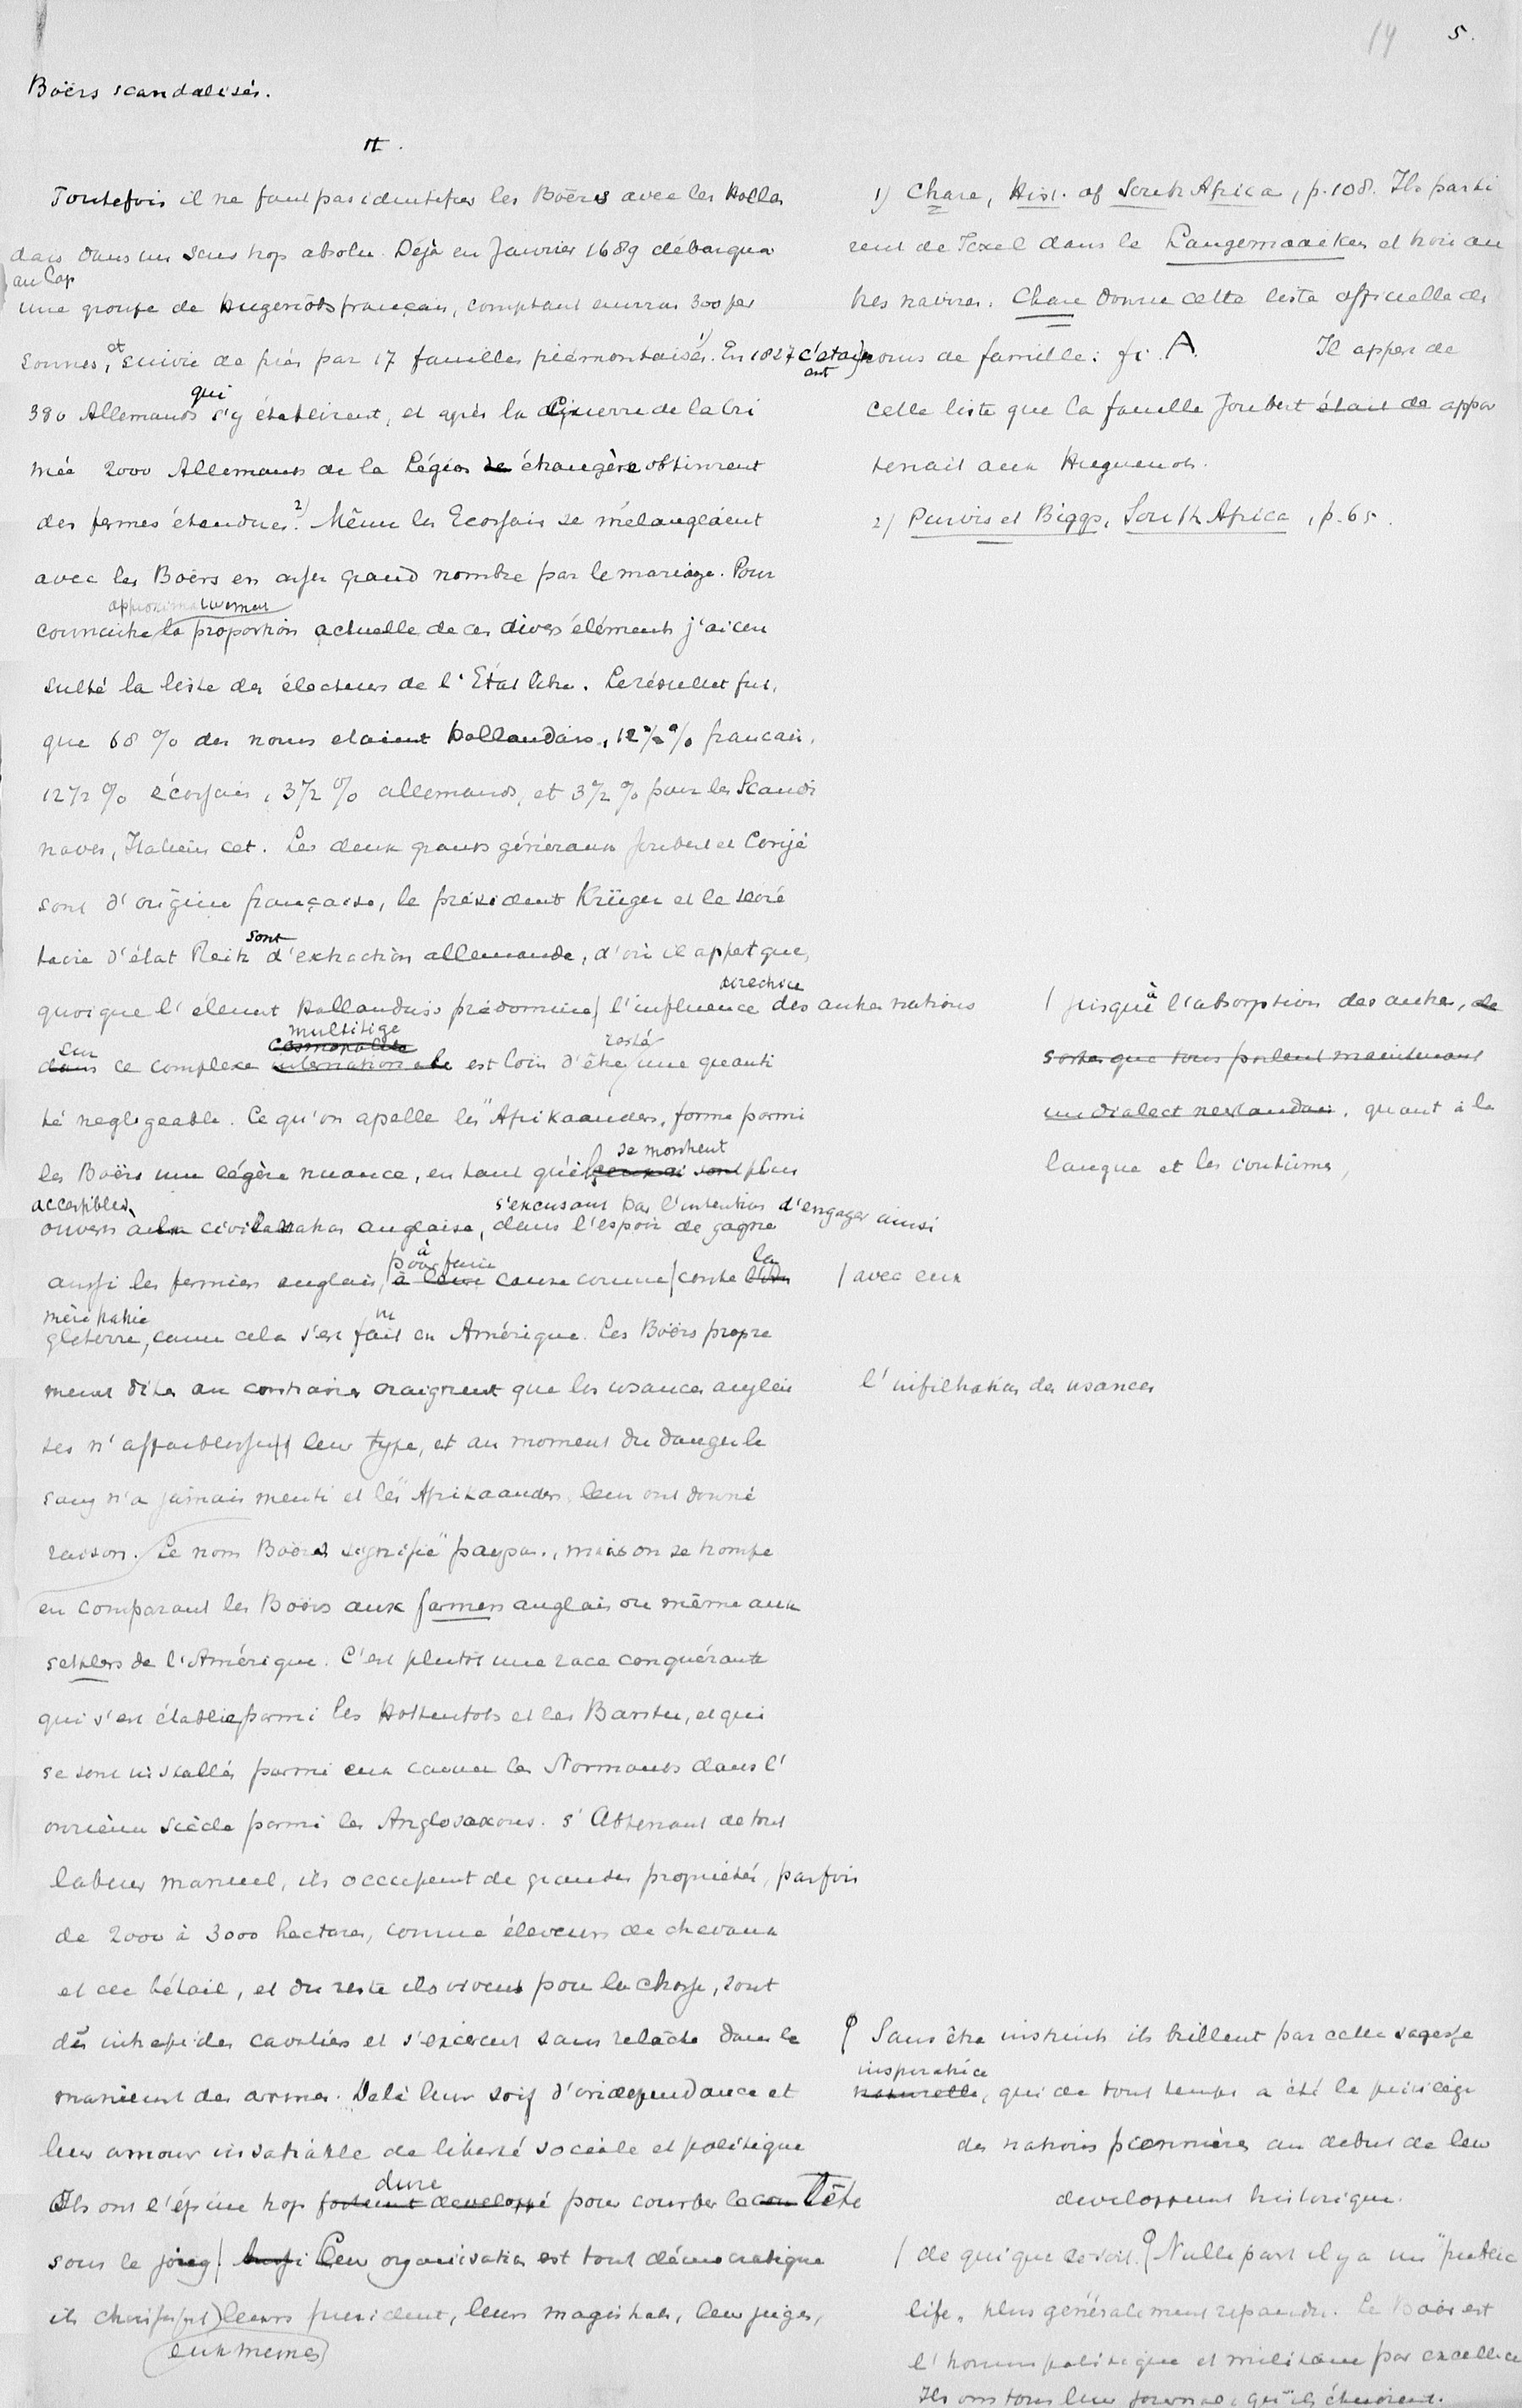 14 5.
Boërs scandalisés.
II.
Toutefois il ne faut pas identifier les Boërs avec les Hollan
dais dans un sens trop absolu. Déjà en Janvier 1689 débarqua
au Cap
une groupe de Hugenots français, comptant environ 300 per
sonnes, et suivie de près par 17 familles piémontaises 1). En 1827 c'étaient
qui
380 Allemands s'y établirent, et après la Guerre de la Cri
mée 2000 Allemans de la Légion de étrangère obtinrent
des fermes étendues 2). Même les Ecossais se mélangeaient
avec les Boërs en assez grand nombre par le mariage. Pour
approximativement
connaitre la proportion actuelle de ces divers éléments j'ai con
sulté la liste des électeurs de l'Etat libre. Le résultat fut,
que 68 % des noms etaient hollandais, 12 1/2 % francais,
12 1/2 % écossais, 3 1/2 % allemands, et 3 1/2 % pour les Scandi
naves, Italiens cet. Les deux grands généraux Joubert et Cronjé
sont d'origine française, le président Krüger et le secré
sont
taire d'état Reitz d'extraction allemande, d'où il appert que,
directrice
quoique l'élement Hollandais prédomine / l'influence des autres nations
multitige
cosmopolite
sur restée
dans ce complexe internationale est loin d'être une quanti
té negligeable. Ce qu'on apelle les "Afrikaanders, forme parmi
se montrent
les Boërs une légère nuance, en tant qu'ils sont plus
accessibles
ouvers à la civilisation anglaise, dans l'espoir de gagner
s'excusant par l'intention d'engager ainsi
à
pour faire la
aussi les fermiers anglais, à leur cause commune / contre
mère patrie
gleterre, comme cela s'est fait en Amérique. Les Boërs propre
ment dites au contraire craignent que les usances anglai
ses n'affaiblissent leur type, et au moment du danger le
sang n'a jamais menti et les "Afrikaanders, leur ont donné
raison. Le nom Boërs signifie "paysan., mais on se trompe
en comparant les Boërs aux farmers anglais ou même aux
setlers de l'Amérique. C'est plutôt une race conquérante
qui s'est établie parmi les Hottentots et les Bantu, et qui
se sont installés parmi eux comme les Normands dans l'
onzième siècle parmi les Anglosaxons. S'Abstenant de tout
labeur manuel, ils occupent de grandes propriétés, parfois
de 2000 à 3000 hectares, comme éleveurs de chevaux
et de bétail, et du reste ils vivent pour la chasse, sont
des intrepides cavaliers et s'exercent sans relâche dans le
maniement des armes. De là leur soif d'independance et
leur amour insatiable de liberté sociale et politique
dure
Ils ont l'épine trop fortement developpé pour courber le cou tête
sous le joug / Leur organisation est tout démocratique
ils choisissent leurs president, leurs magistrats, leur juges,
eux memes
1) Chase, Hist. of South Africa, p. 108. Ils parti
rent de Texel dans le Langemaaiken et trois au
tres navires. Chase donne cette liste officielle des
noms de famille: fi. A. Il appert de
cette liste que la famille Joubert était de appar
tenait aux Huguenots.
2) Purvis et Biggs, South Africa, p. 65.
/ jusqu'à l'absorption des autres, de
sorte que tous parlent maintenant
un dialect neerlandais, quant à la
langue et les coutumes,
/ avec eux
l'infiltration des usances
Sans être instruits ils brillent par cette sagesse
inspiratrice
naturelle, qui de tout temps a été le privilège
des nations pionnières au debut de leur
developpement historique.
/ de qui que ce soit. Nulle part il y a un "public
life, plus généralement repandu. Le Boër est
l'homme politique et militaire par excellence
Ils ont tous leur journal, qu'ils